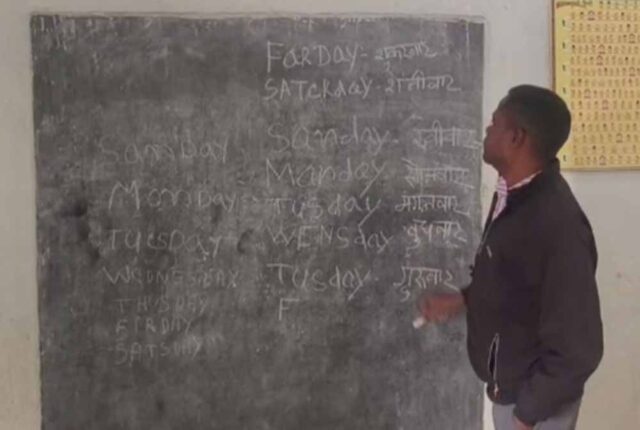 FARDAY - शुक्रवार
SATERDAY - शनीवार
Sanday - रवीवार
Manday - सोमवार
Tusday - मंगलवार
WENSday - बुधवार
Tusday - गुरुवार
F
SanDay
MonDay
TUESDAY
WADNESDAY
THUSDAY
FIRDAY
SATSDAY